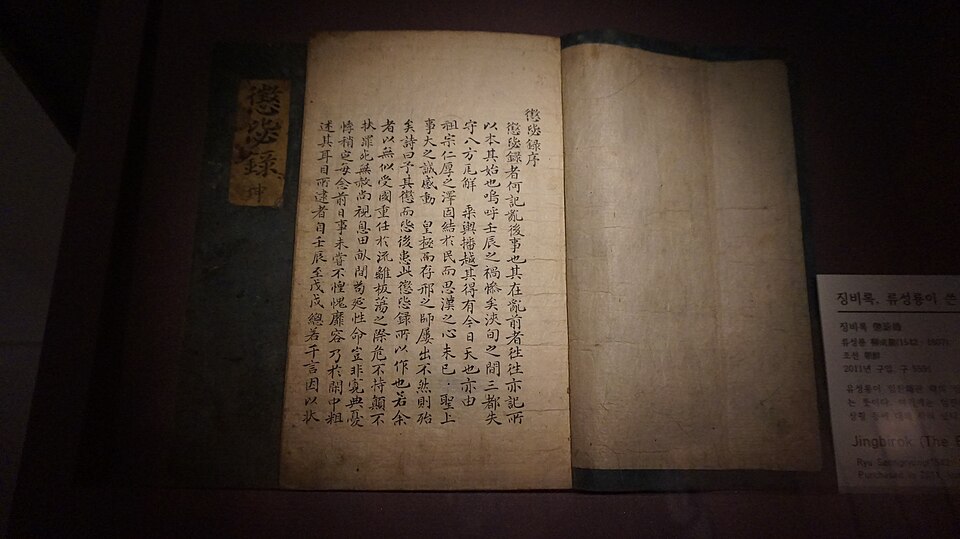 懲毖錄
坤
懲毖錄序
懲毖錄者何記亂後事也其在亂前者往往亦記所
以本其始也嗚呼壬辰之禍慘矣浹旬之間三都失
守八方瓦解 乘輿播越其得有今日天也亦由
祖宗仁厚之澤固結於民而思漢之心未已 聖上
事大之誠感動 皇極而存邢之師屢出不然則殆
矣詩曰予其懲而毖後患此懲毖錄所以作也若余
者以無似受國重任於流離板蕩之際危不持顛不
扶罪死無赦尚視息田畝間苟延性命豈非寬典憂
悸稍定每念前日事未嘗不惶愧靡容乃於閑中粗
述其耳目所逮者自壬辰至戊戌總若干言因以狀
징비록, 류성룡이 쓴
징비록 懲毖錄
류성룡 柳成龍(1542-1607)
조선 朝鮮
2011년 구입, 구
류성룡이 임진왜란
Jingbirok (The
Ryu Seongnyong
Purchased in 2011